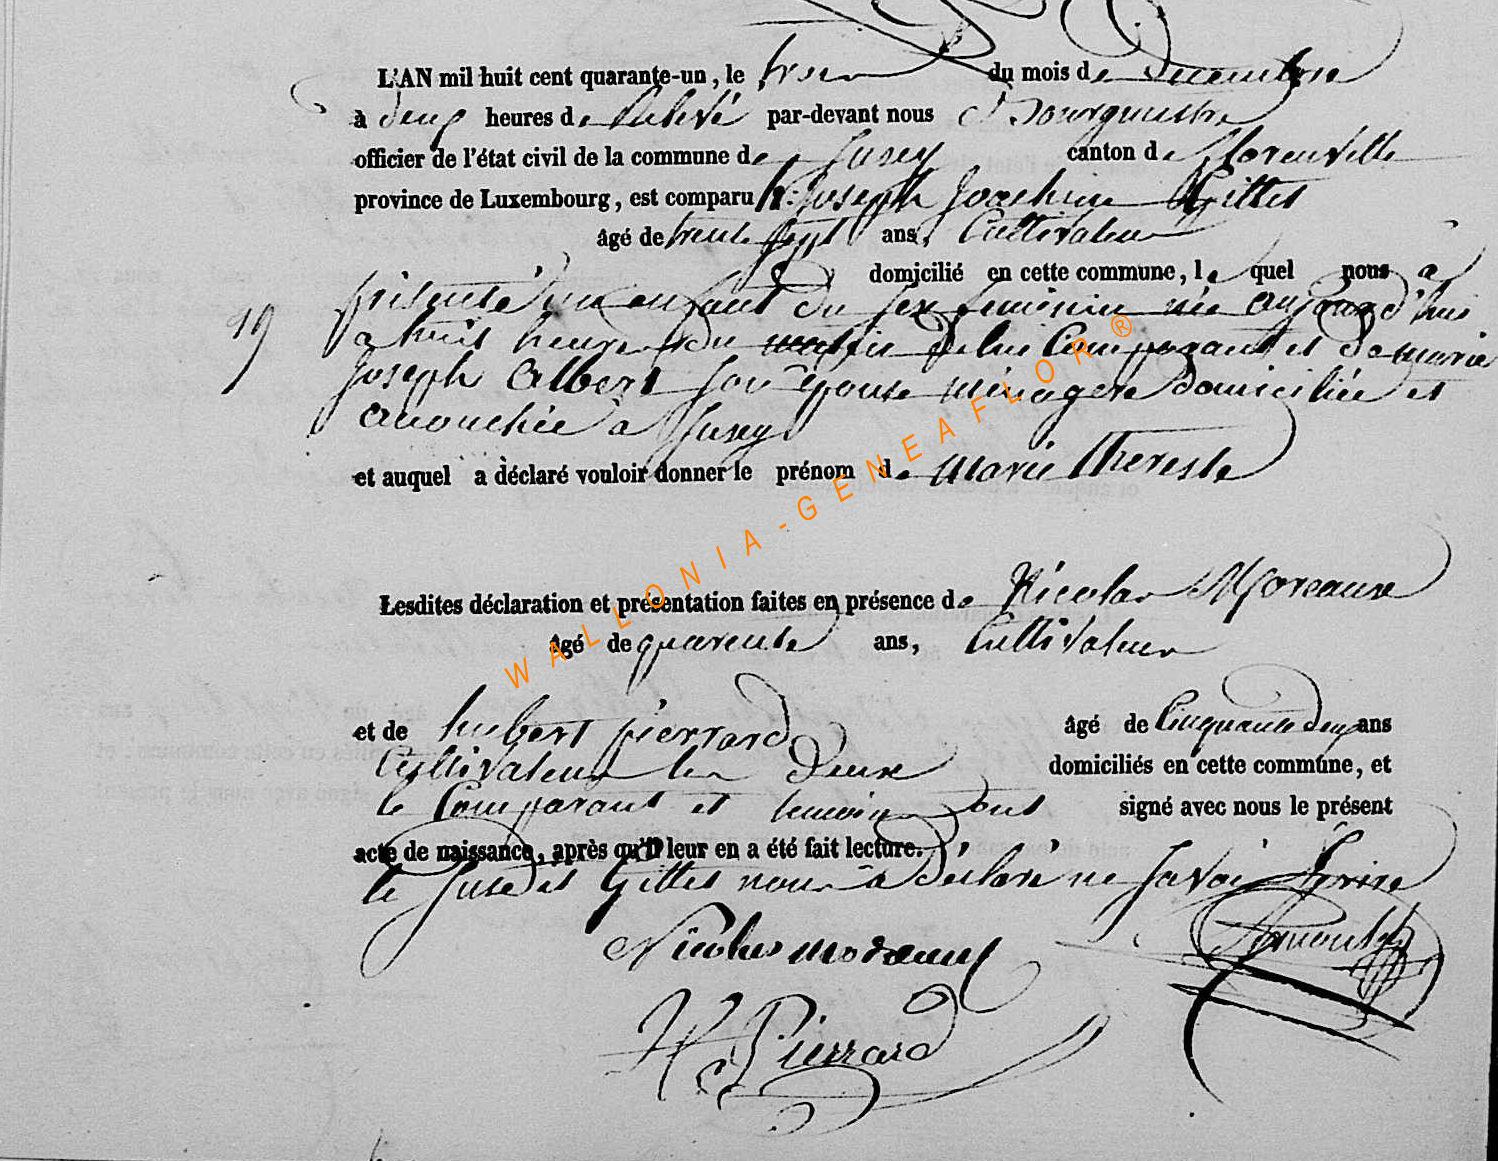 L'AN mil huit cent quarante-un, le du mois de decembre
à deux heures de relevé par-devant nous Bourgmestre
officier de l'état civil de la commune de Suxy canton de florenville
province de Luxembourg, est comparu Joseph Joachim Gilles
âgé de trente sept ans, Cultivateur
domicilié en cette commune, le quel nous a
présenté un enfant du sex feminin née aujourd'hui
19
a huit heures du matin de lui Comparant et de marie
Joseph Albert son épouse ménagere domiciliée et
accouchée a Suxy
et auquel a déclaré vouloir donner le prénom de Marie Therese
WALLONIA-GENEAFLOR®
Lesdites déclaration et présentation faites en présence de Nicolas Moreaux
âgé de quarente ans, Cultivateur
et de hubert pierrard âgé de Cinquante deux ans
Cultivateur les deux domiciliés en cette commune, et
le Comparant et temoins ont signé avec nous le présent
acte de naissance, après qu'il leur en a été fait lecture.
le Gilles nous a déclaré ne savoir
Nicolas moreaux
H Pierrard